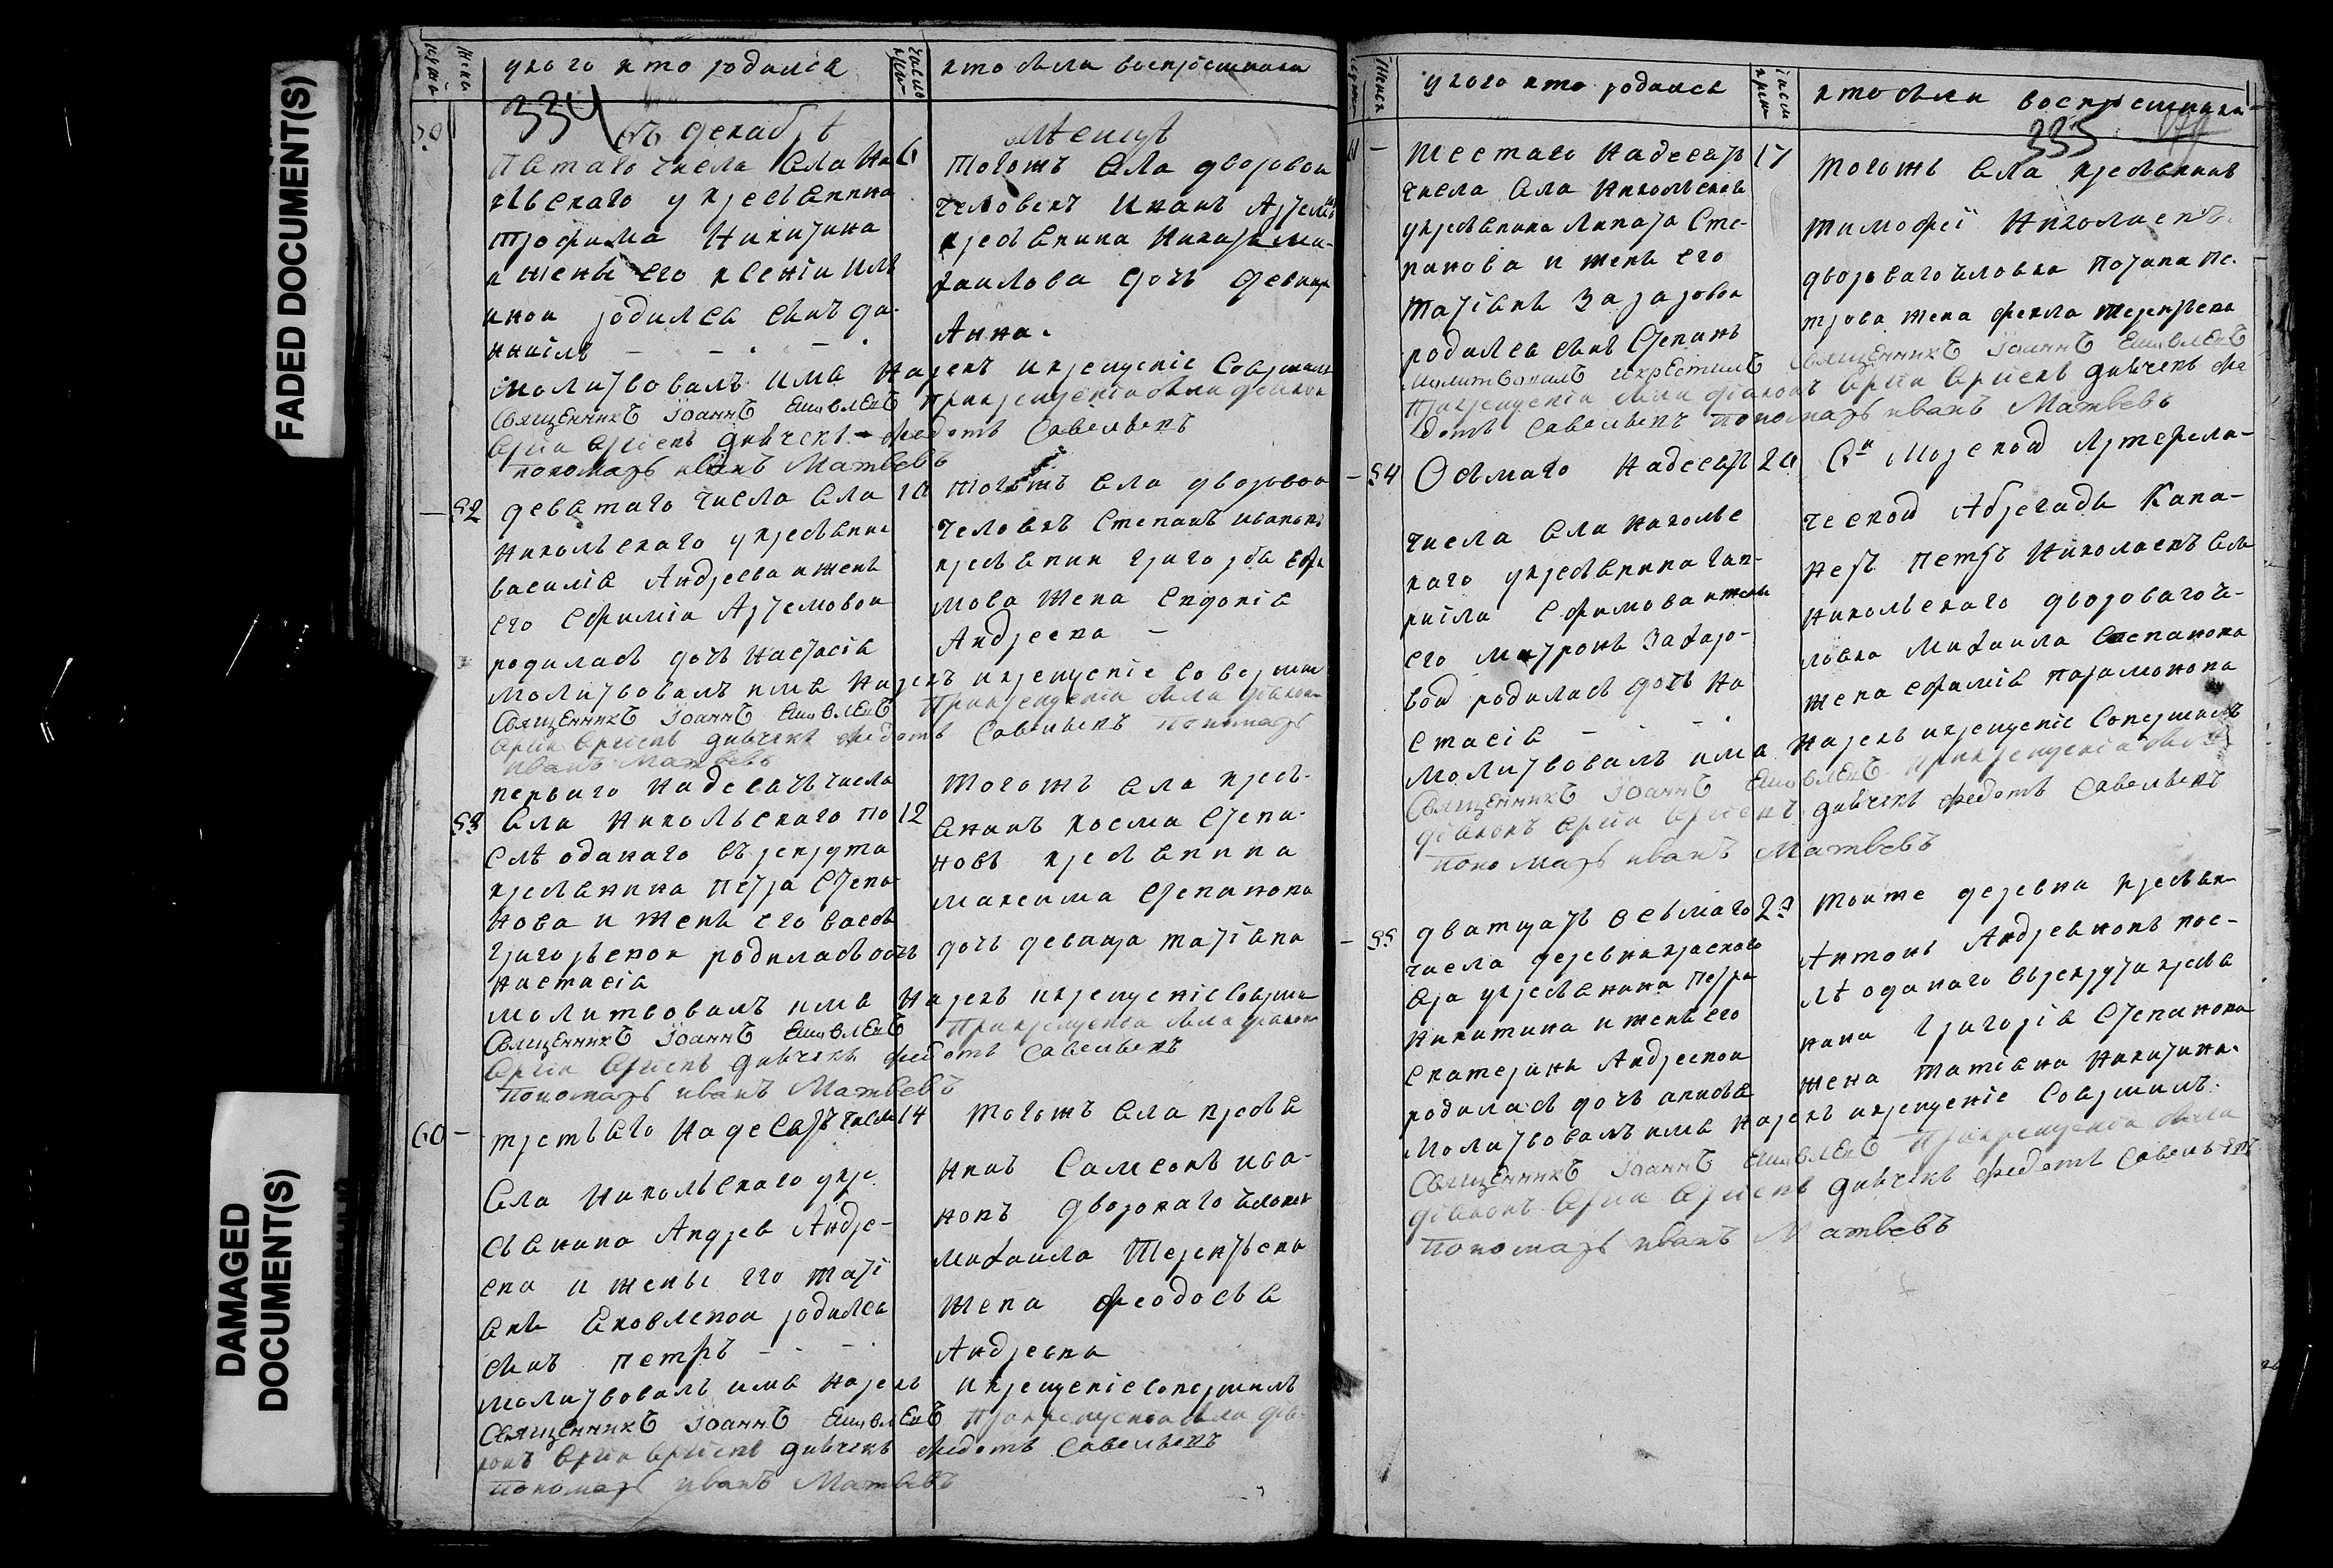 FADED DOCUMENT(S)
DAMAGED
DOCUMENT(S)
у кого кто родился
кто были восприемники
334
въ декабрѣ
мѣсецѣ
Пятаго числа села Ни
6
кольскаго у крестьянина
Трофима Никитина
и жены его Ксении
родился сынъ Да-
ниилъ
тогожъ села дворовой
человекъ Иванъ
крестьянина Никиты Ми-
хаилова дочь девица
Анна.
молитвовалъ имя нарекъ и крещение совершилъ
Священникъ Iоаннъ
при крещении были дiаконъ
дьячекъ Федотъ Савельевъ
пономарь иванъ Матвеевъ
52
девятаго числа села
10
Никольскаго у крестьянина
василия Андреева и жены
его Ефимiи Артемовой
родилась дочь Настасiя
тогожъ села дворовой
человекъ Степанъ ивановъ
крестьянина григорья Ефи
мова жена Евдокия
Андреева
молитвовалъ имя нарекъ и крещение совершилъ
Священникъ Iоаннъ
при крещении были дiаконъ
дьячекъ Федотъ Савельевъ пономарь
иванъ Матвеевъ
перваго на десять числа
53
села Никольскаго по
12
слѣ отданаго въ рекруты
крестьянина Петра Степа
нова и жены его вассы
григорьевой родилась дочь
настасiя
тогожъ села кресть-
янинъ косма Степа-
новъ крестьянина
максима Степанова
дочь девица татiана
молитвовалъ имя нарекъ и крещение совершилъ
Священникъ Iоаннъ
при крещении были дiаконъ
дьячекъ Федотъ Савельевъ
пономарь иванъ Матвеевъ
60
третьяго на десять числа
14
села Никольскаго у кре
стьянина Андрея Андре-
ева и жены его татi
яны Яковлевой родился
сынъ петръ
тогожъ села крестья
нинъ Самсонъ ива-
новъ дворонаго человека
михаила Терентьева
жена феодосья
Андреева
молитвовалъ имя нарекъ и крещение совершилъ
Священникъ Iоаннъ
при крещении были дiа-
конъ дьячекъ Федотъ Савельевъ
пономарь иванъ Матвеевъ
у кого кто родился
кто были восприемники
335
61
шестаго надесять
17
числа села Никольскаго
у крестьянина Липата Сте-
панова и жены его
татiяны Захаровой
родился сынъ Степанъ
тогожъ села крестьянинъ
тимофей Николаевъ
дворового человека потапа Пе-
трова жена фекла терентьева
молитвовалъ и крестилъ Священникъ Iоаннъ
при крещении были дiаконъ дьячекъ фе
дотъ Савельевъ пономарь иванъ Матвеевъ
54
Осьмаго надесять
20
числа села Николь
скаго у крестьянина гав-
риила Ефимова и жены
его матроны Захаро-
вой родилась дочь На
стасiя
морской Артерили-
ческой Абригады Кано-
неръ петръ Николаевъ села
никольскаго двороваго че-
ловека михаила Степанова
жена ефимiя парамонова
молитвовалъ имя нарекъ и крещение совершилъ
Священникъ Iоаннъ
при крещении были
дiаконъ дьячекъ Федотъ Савельевъ
пономарь иванъ Матвеевъ
55
дватцать осьмаго
29
числа деревни краснаго
яра у крестьянина петра
никитина и жены его
Екатерины Андреевой
родилась дочь
тойже деревни крестьян
Антонъ Андреяновъ пос-
лѣ отданаго въ рекруты крестья
нина григория Степанова
жена татiяна Никитина.
молитвовалъ имя нарекъ и крещение совершилъ.
Священникъ Iоаннъ
при крещении были
дiаконъ дьячекъ Федотъ Савельевъ
пономарь иванъ Матвеевъ